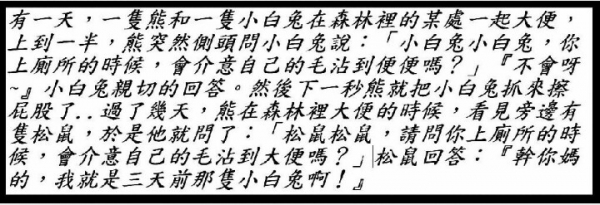 有一天，一隻熊和一隻小白兔在森林裡的某處一起大便，
上到一半，熊突然側頭問小白兔說：「小白兔小白兔，你
上廁所的時候，會介意自己的毛沾到便便嗎？」『不會呀
~』小白兔親切的回答。然後下一秒熊就把小白兔抓來擦
屁股了..過了幾天，熊在森林裡大便的時候，看見旁邊有
隻松鼠，於是他就問了：「松鼠松鼠，請問你上廁所的時
候，會介意自己的毛沾到大便嗎？」松鼠回答：『幹你媽
的，我就是三天前那隻小白兔啊！』